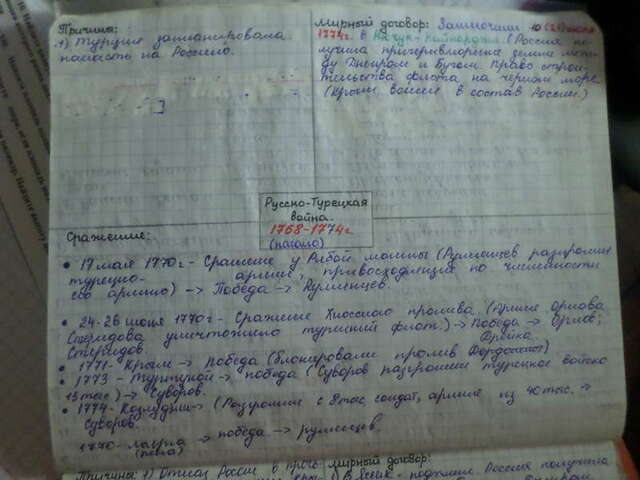 Причины:
1) Турция запланировала
напасть на Россию.
Мирный договор: Заключили 10 (21) июля
1774г. в Кючук-Кайнарджи. (Россия по-
лучила причерноморские земли меж-
ду Днепром и Бугом. Право строи-
тельства флота на чёрном море
(Крым войдёт в состав России.)
Русско-Турецкая
война.
1768-1774г
(начало)
Сражение:
17 мая 1770г - Сражение у Рябой могилы (Румянцев разгромил
турецкую армию, превосходящую по численности
его армию) → Победа → Румянцев.
24-26 июня 1770г - Сражение Хиосского пролива. (Орлова
Спиридова уничтожило турецкий флот.) → Победа → Орлов,
Спиридов.
1771 - Крым → победа (блокировали пролив Дарданелл)
1773 - Туртукай → победа (Суворов разгромил турецкое войско
→ Суворов.
1774 - Козлуджи → (Разгромил с 8 тыс. солдат, армию из 40 тыс. →
Суворов.
1770 - Ларга → победа → румянцев.
(река)
Причины: 1) Отказ России
мирный договор:
Россия получила